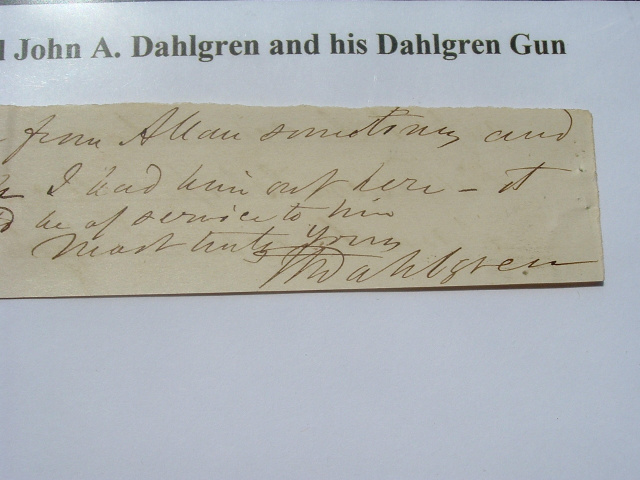 l John A. Dahlgren and his Dahlgren Gun
from Allan sometimes and
I had him out here - it
be of service to him
Most truly yours
Dahlgren